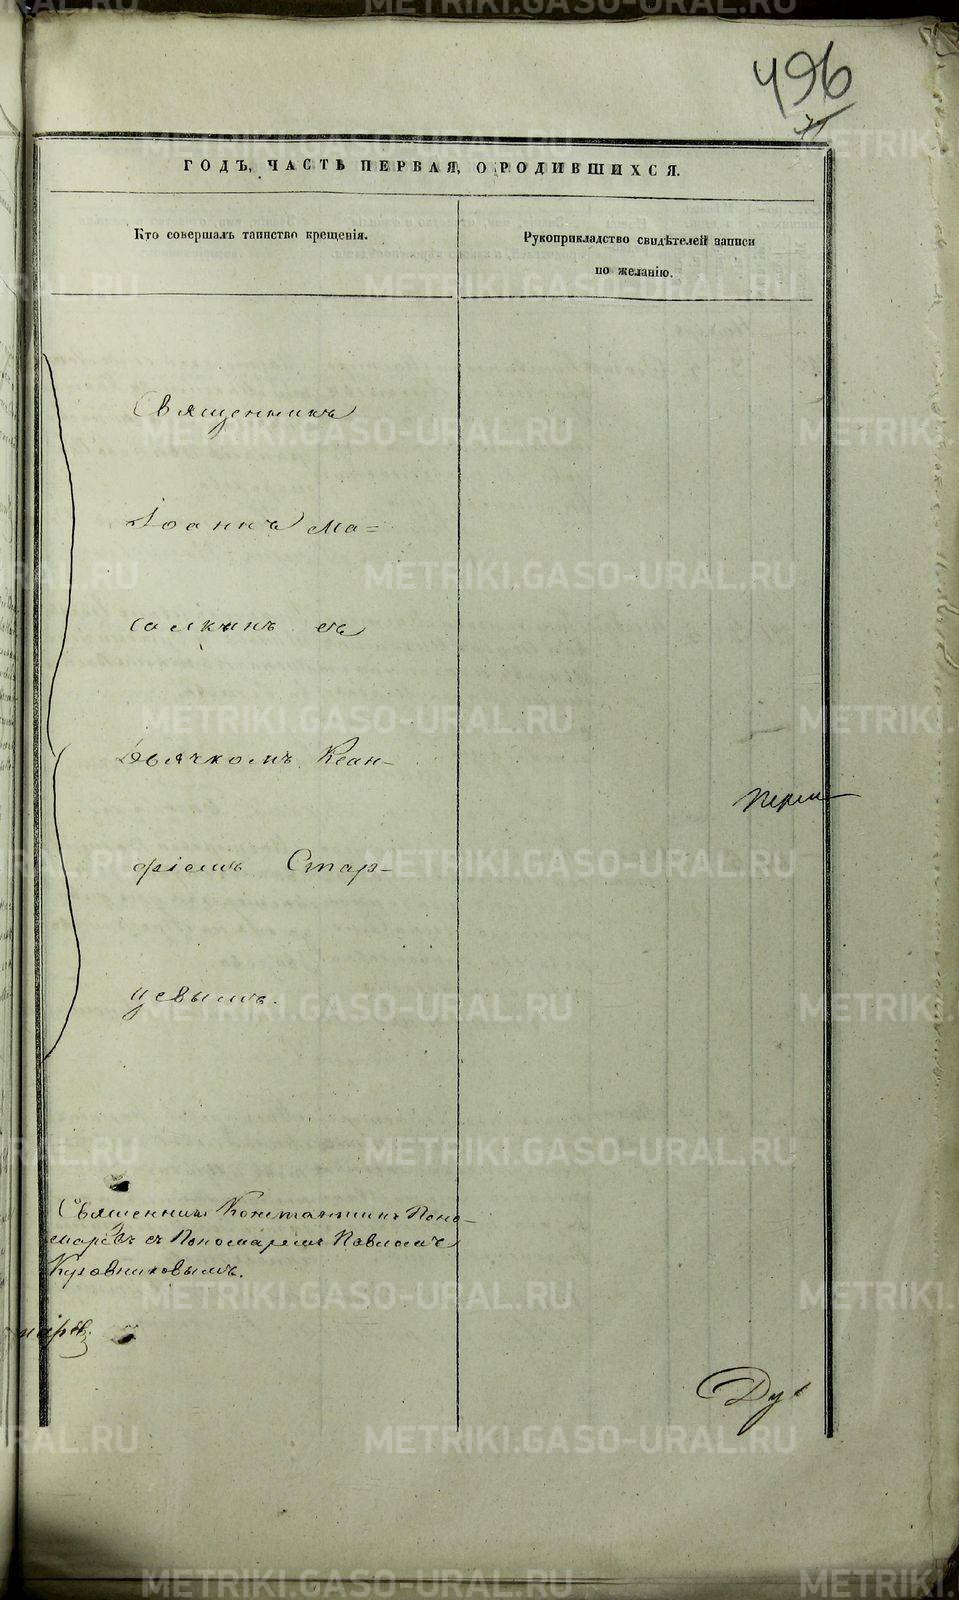 496
ГОДЪ, ЧАСТЬ ПЕРВАЯ, О РОДИВШИХСЯ.
Кто совершалъ таинство крещенія.
Рукоприкладство свидѣтелей записи
по желанію.
Священникъ
Іоаннъ Ма=
салкинъ съ
Дьячкомъ Ксан-
фіемъ Стар-
цевымъ.
Священникъ Константинъ Поно-
маревъ съ Пономаремъ Павломъ
Куховниковымъ.
Ду
METRIKI.GASO-URAL.RU